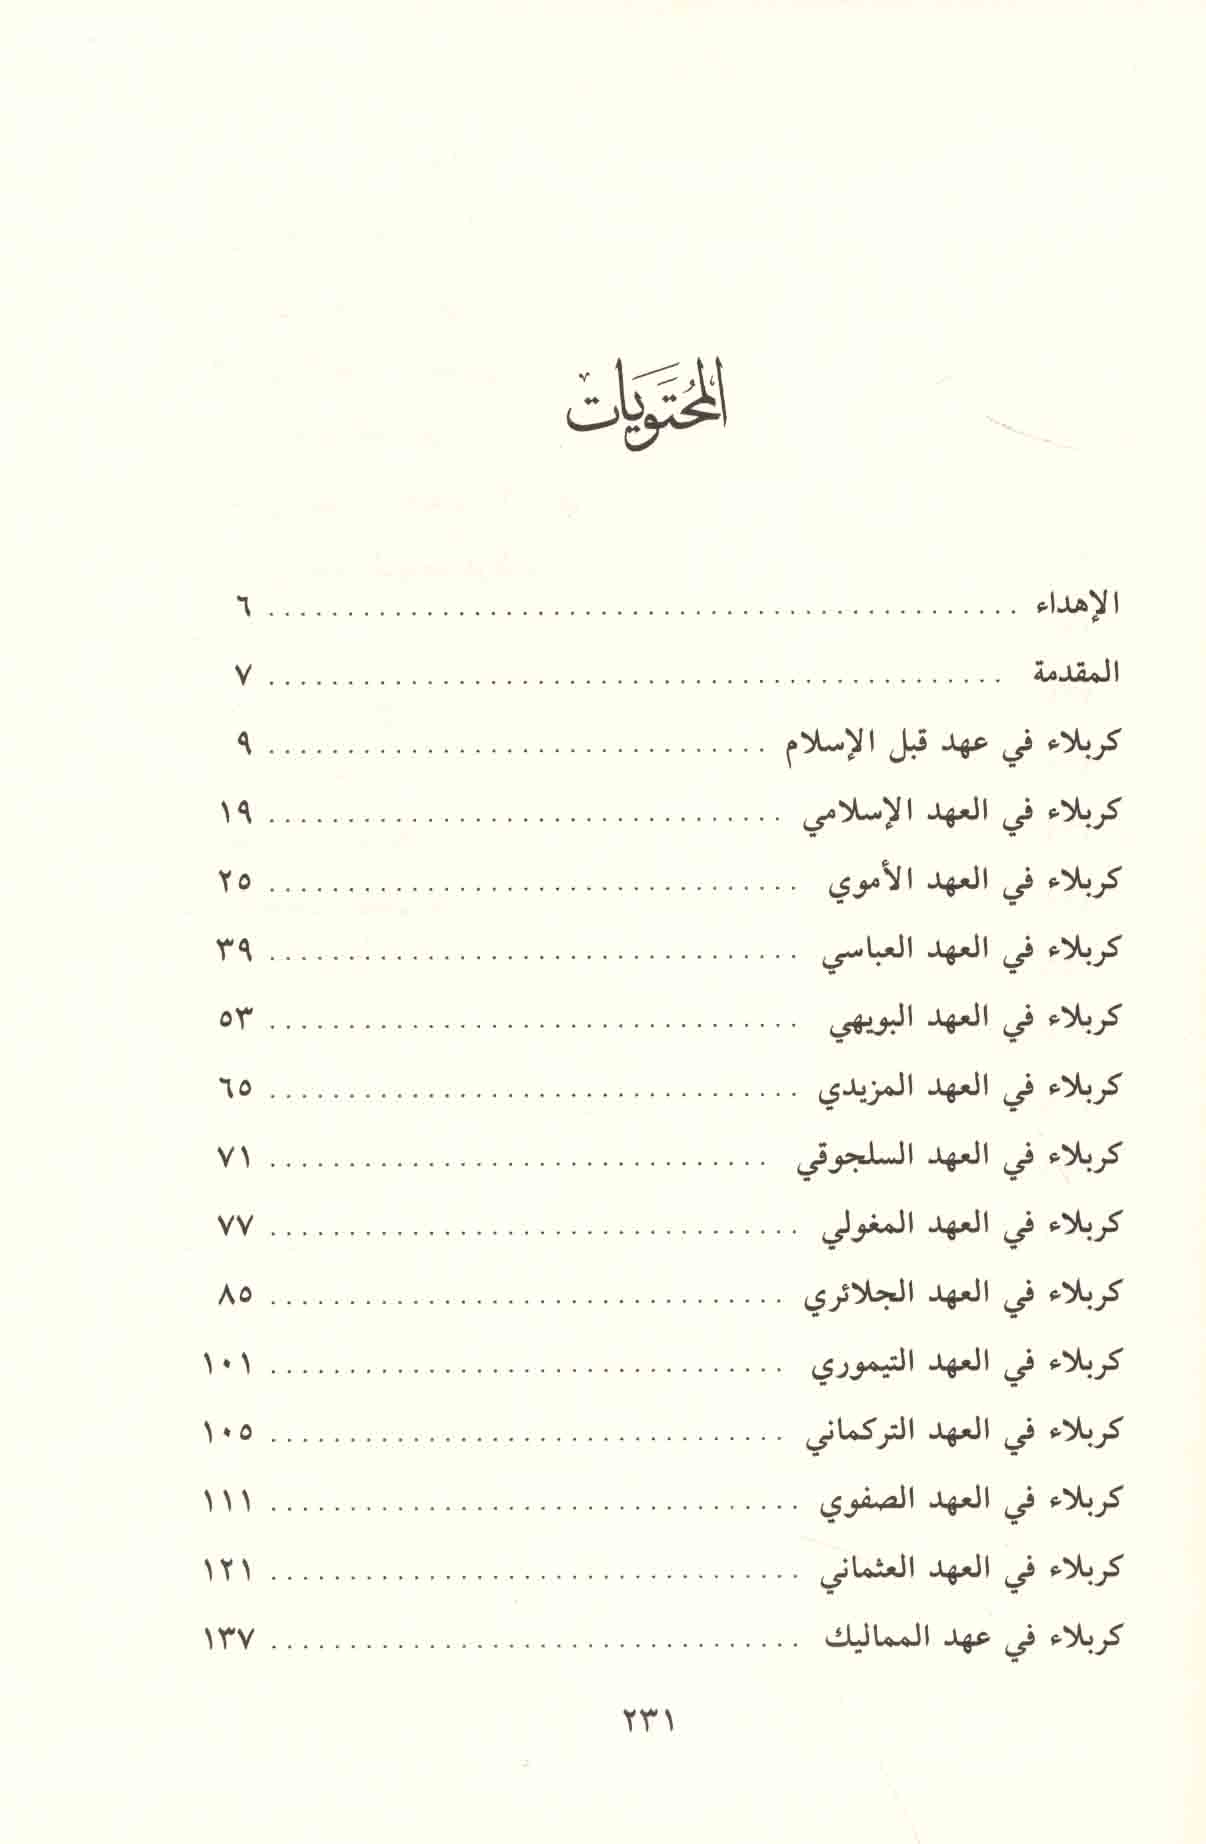 المُحتَويات
الإهداء ................................................ ٦
المقدمة ............................................... ٧
كربلاء في عهد قبل الإسلام ................................ ٩
كربلاء في العهد الإسلامي ................................. ١٩
كربلاء في العهد الأموي .................................. ٢٥
كربلاء في العهد العباسي .................................. ٣٩
كربلاء في العهد البويهي .................................. ٥٣
كربلاء في العهد المزيدي .................................. ٦٥
كربلاء في العهد السلجوقي ................................ ٧١
كربلاء في العهد المغولي .................................. ٧٧
كربلاء في العهد الجلائري ................................. ٨٥
كربلاء في العهد التيموري ................................. ١٠١
كربلاء في العهد التركماني ................................. ١٠٥
كربلاء في العهد الصفوي .................................. ١١١
كربلاء في العهد العثماني .................................. ١٢١
كربلاء في عهد المماليك .................................. ١٣٧
٢٣١